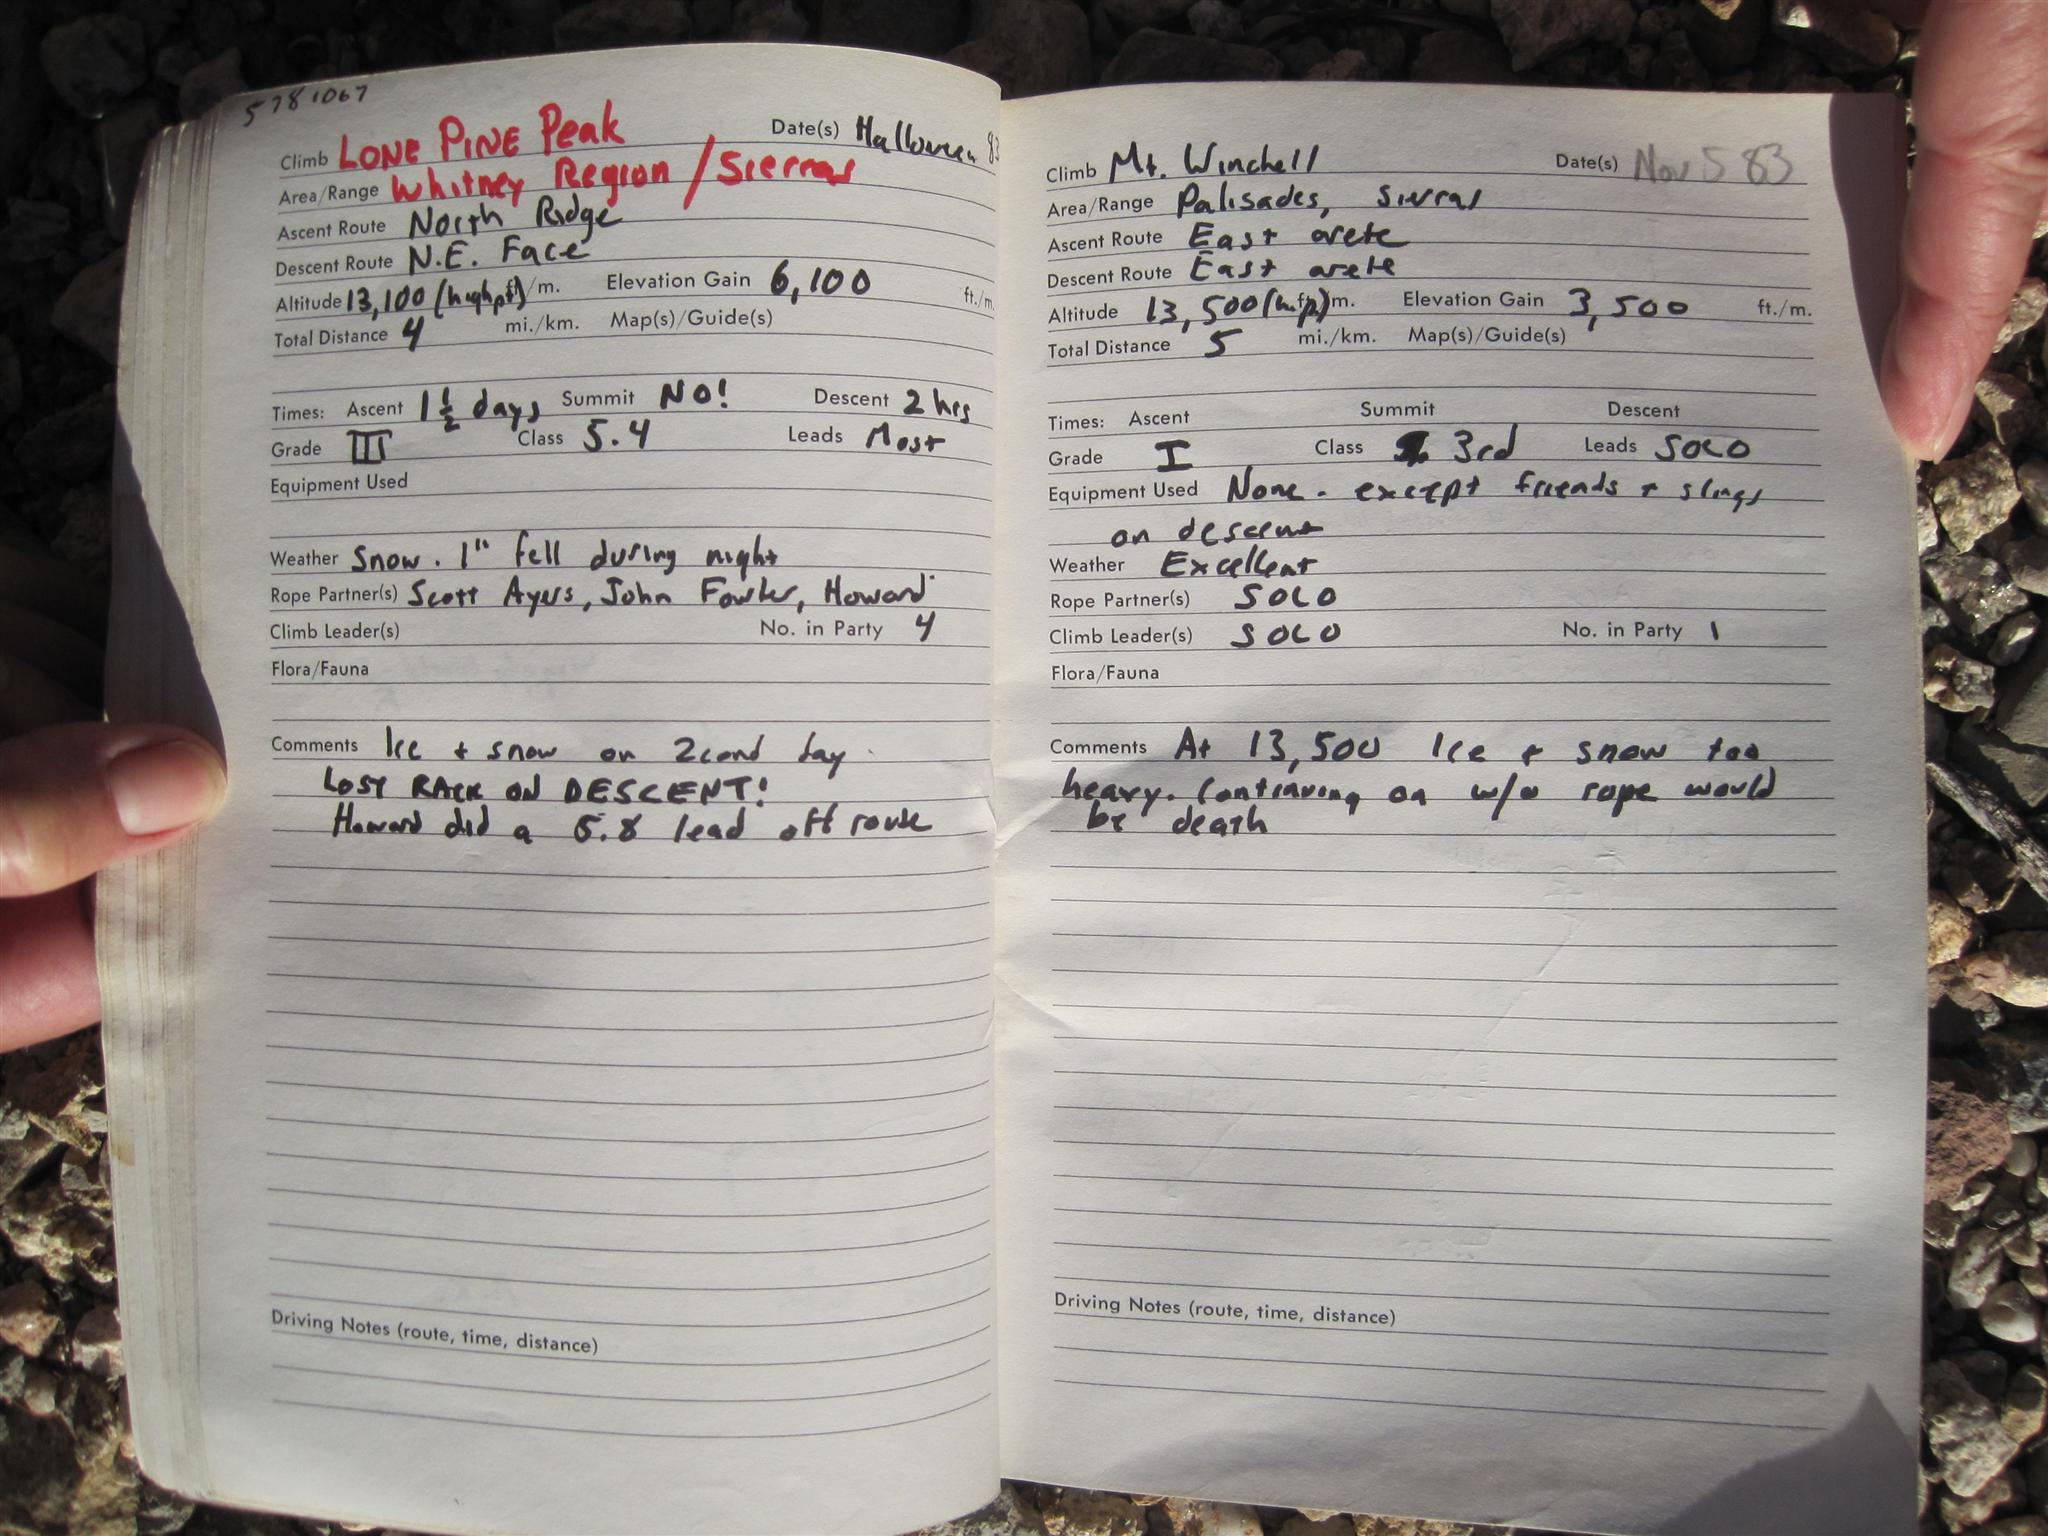 5781067
Climb LONE PINE Peak Date(s) Halloween 83
Area/Range Whitney Region / Sierras
Ascent Route North Ridge
Descent Route N.E. Face
Altitude 13,100 (high pt) /m. Elevation Gain 6,100 ft./m.
Total Distance 4 mi./km. Map(s)/Guide(s)
Times: Ascent 1 1/2 days Summit NO! Descent 2 hrs
Grade III Class 5.4 Leads Most
Equipment Used
Weather Snow. 1" fell during night
Rope Partner(s) Scott Ayers, John Fowler, Howard
Climb Leader(s) No. in Party 4
Flora/Fauna
Comments Ice + snow on 2cond day
LOST RACK ON DESCENT!
Howard did a 5.8 lead off route
Driving Notes (route, time, distance)
Climb Mt. Winchell Date(s) Nov 5 83
Area/Range Palisades, Sierras
Ascent Route East arete
Descent Route East arete
Altitude 13,500 (h.p.) m. Elevation Gain 3,500 ft./m.
Total Distance 5 mi./km. Map(s)/Guide(s)
Times: Ascent Summit Descent
Grade I Class 3rd Leads SOLO
Equipment Used None. except friends + slings
on descent
Weather Excellent
Rope Partner(s) SOLO
Climb Leader(s) SOLO No. in Party 1
Flora/Fauna
Comments At 13,500 Ice + snow too
heavy. Continuing on w/o rope would
be death
Driving Notes (route, time, distance)